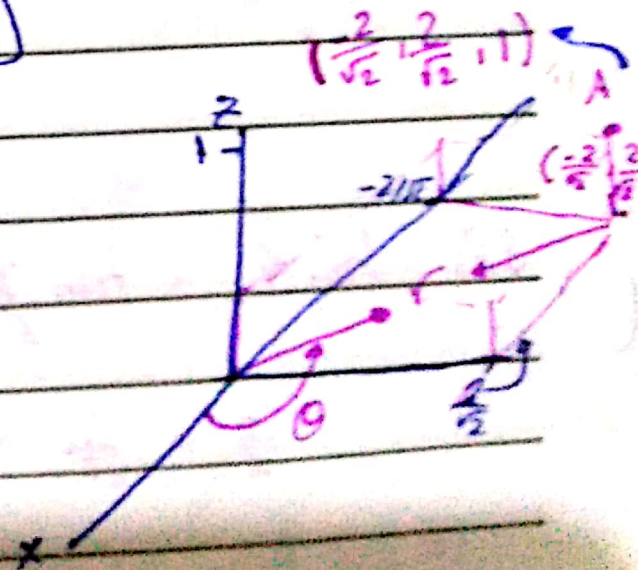 (2/√2, 2/√2, 1)
A
z
1
(-2/√2, 2/√2
-2/√2
r
2/√2
θ
x